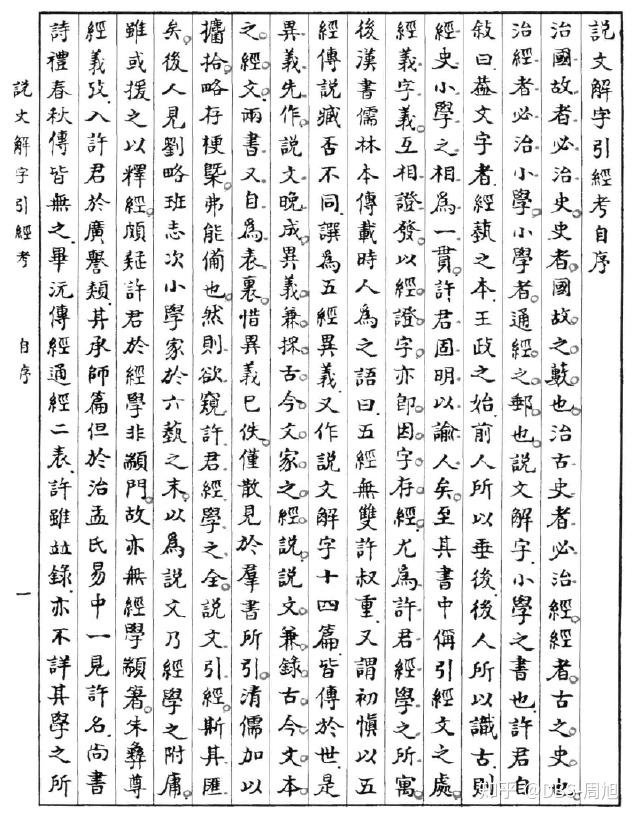 說文解字引經考自序
治國故者必治史。史者。國故之藪也。治古史者必治經。經者。古之史也。
治經者必治小學。小學者。通經之郵也。說文解字。小學之書也。許君自
敍曰。葢文字者。經埶之本。王政之始。前人所以垂後。後人所以識古。則
經史小學之相爲一貫。許君固明以諭人矣。至其書中偁引經文之處。
經義字義。互相證發。以經證字。亦卽因字存經。尤爲許君經學之所寓。
後漢書儒林本傳載時人爲之語曰。五經無雙許叔重。又謂初愼以五
經傳說臧否不同。譔爲五經異義。又作說文解字十四篇。皆傳於世。是
異義先作。說文晚成。異義兼採古今文家之經說。說文兼錄古今文本
之經文。兩書又自爲表裏。惜異義已佚。僅散見於羣書所引。清儒加以
攟拾。略存梗槩。弗能備也。然則欲窺許君經學之全。說文引經。斯其匯
矣。後人見劉略班志次小學家於六藝之末。以爲說文乃經學之附庸。
雖或援之以釋經。頗疑許君於經學非顓門。故亦無經學顓箸。朱彝尊
經義攷。入許君於廣譽類。其承師篇但於治孟氏易中一見許名。尚書
詩禮春秋傳皆無之。畢沅傳經通經二表。許雖竝錄。亦不詳其學之所
說文解字引經考 自序 一
知乎 @DBQ-周旭